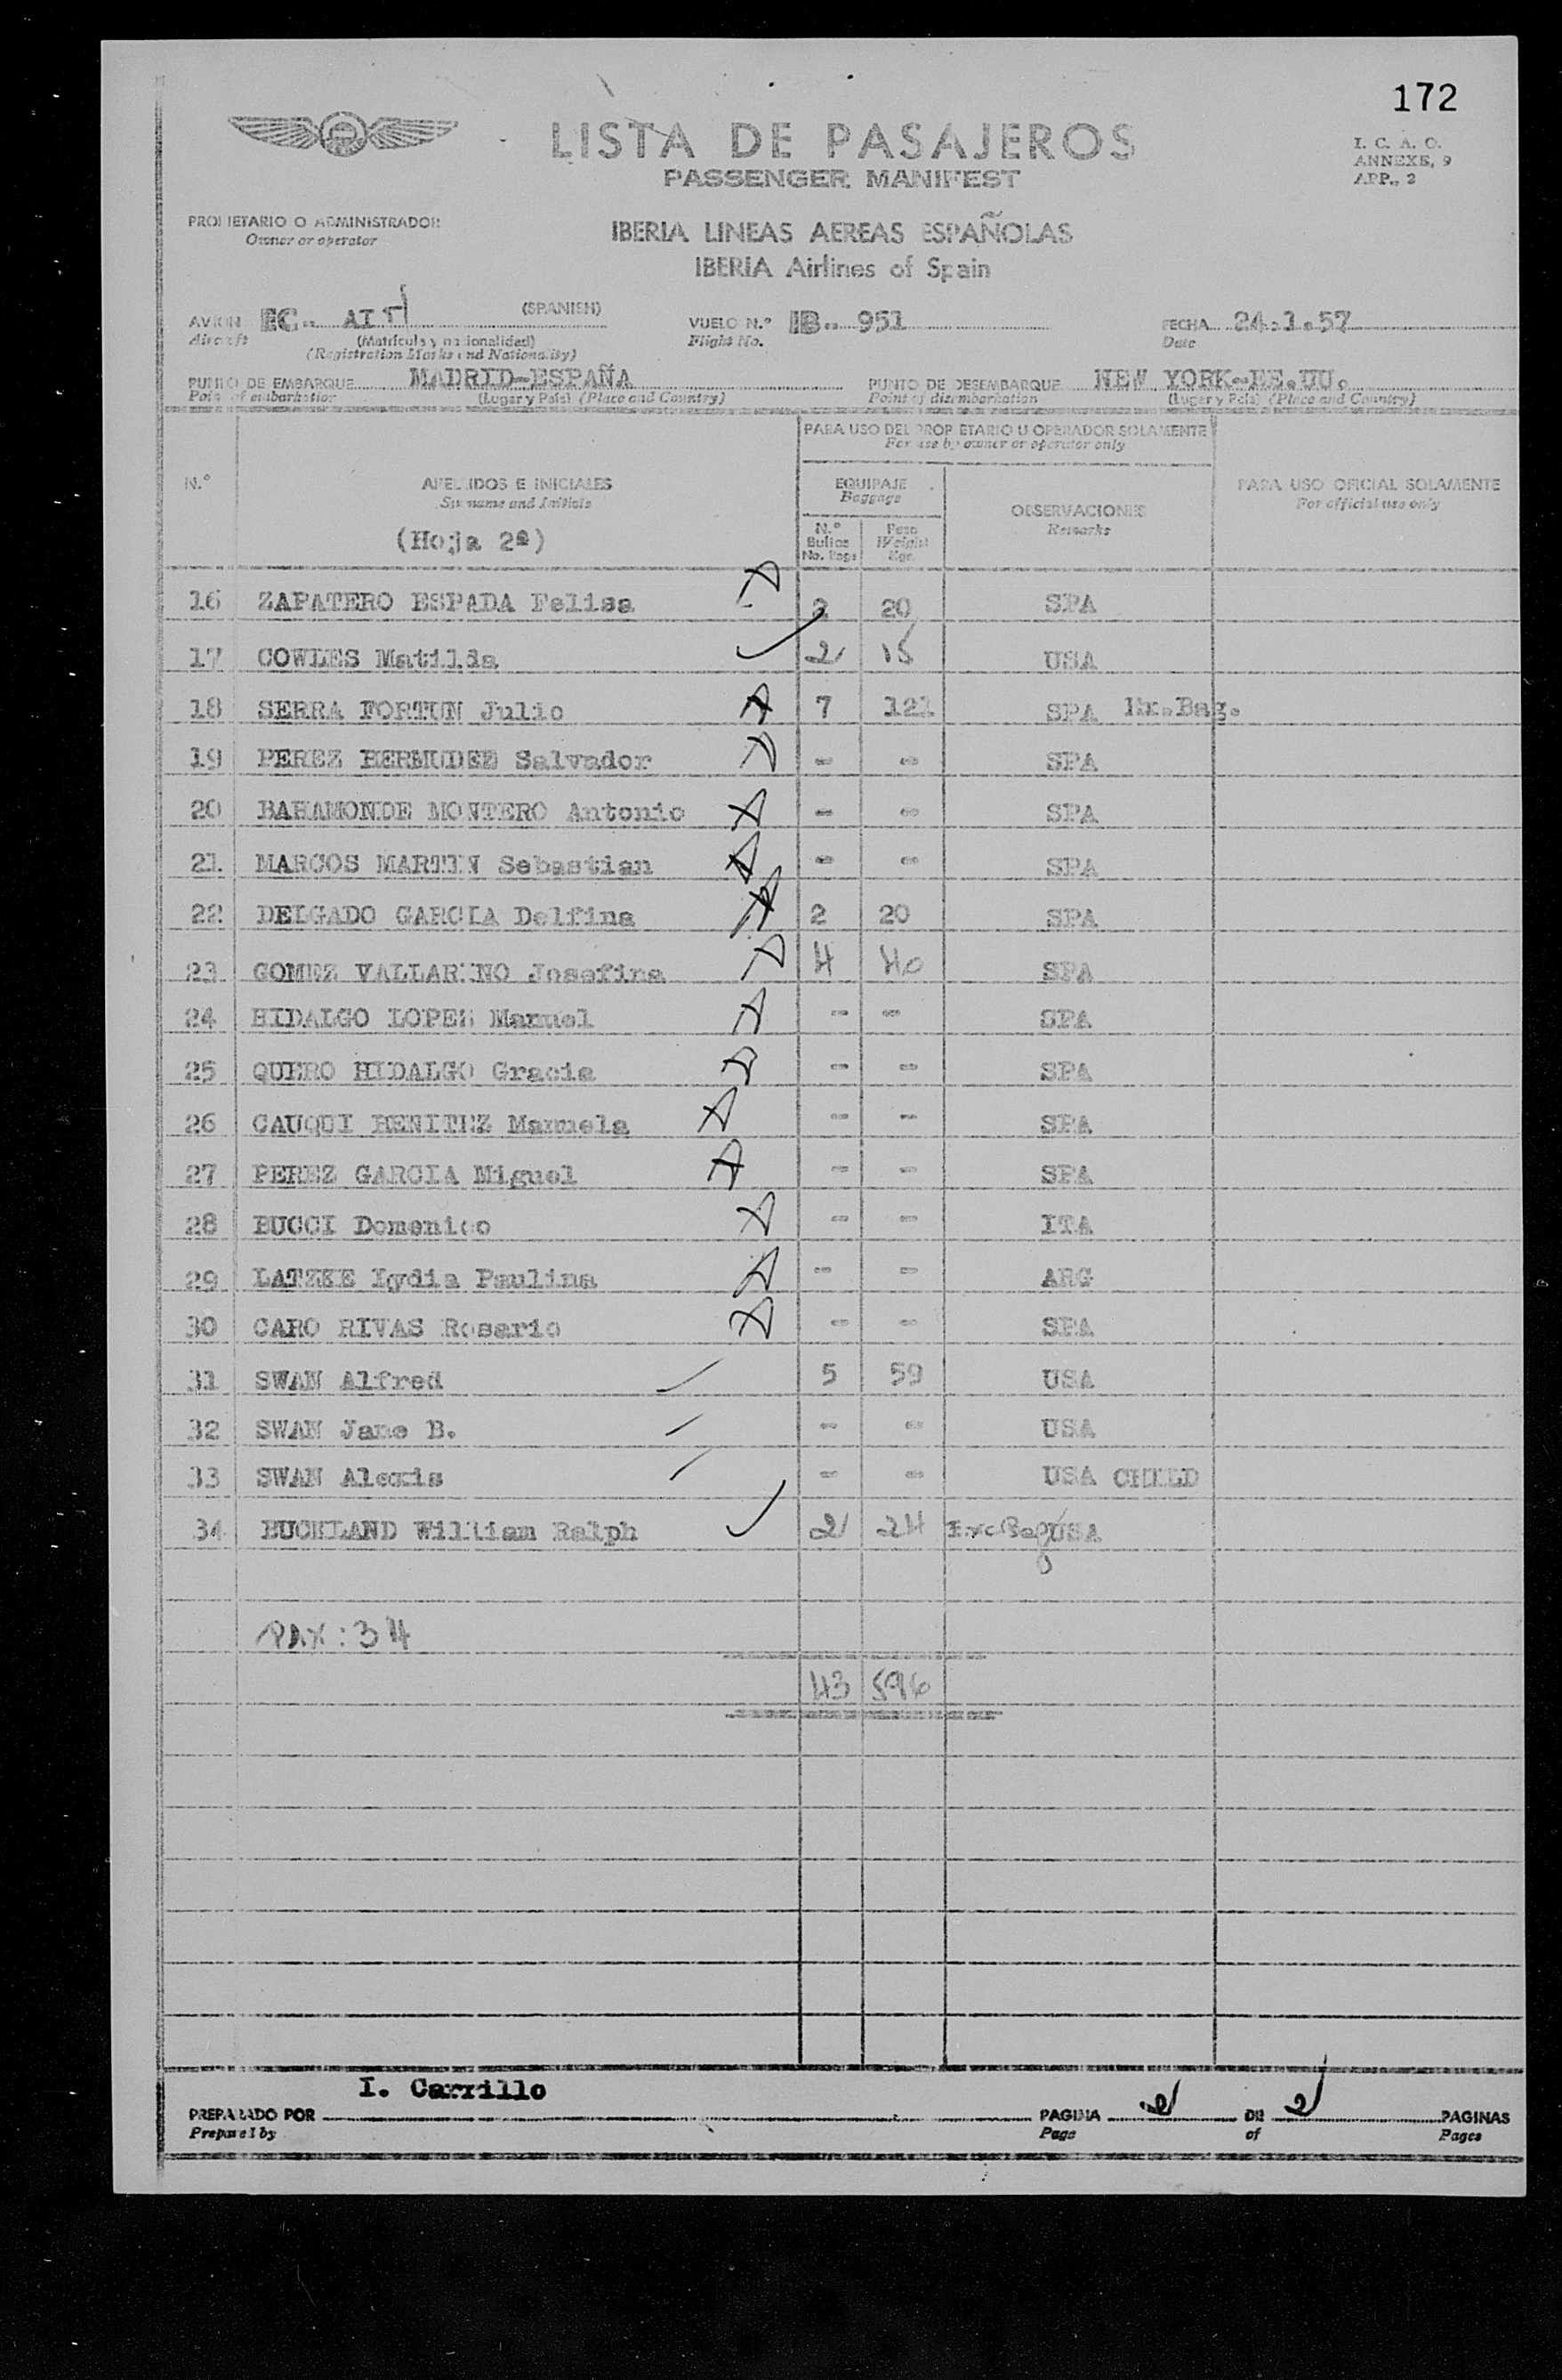 172
LISTA DE PASAJEROS
PASSENGER MANIFEST
I. C. A. O.
ANNEXE, 9
APP., 2
PROPIETARIO O ADMINISTRADOR
Owner or operator
IBERIA LINEAS AEREAS ESPAÑOLAS
IBERIA Airlines of Spain
AVION EC.- (SPANISH) VUELO N.º IB.- 951 FECHA 24.1.57
Aircraft (Matricula y nacionalidad) Flight No. Date
(Registration Marks and Nationality)
PUNTO DE EMBARQUE MADRID-ESPAÑA PUNTO DE DESEMBARQUE NEW YORK-EE.UU.
Point of embarkation (Lugar y País) (Place and Country) Point of disembarkation (Lugar y País) (Place and Country)
PARA USO DEL PROPIETARIO U OPERADOR SOLAMENTE
For use by owner or operator only
N.º APELLIDOS E INICIALES EQUIPAJE PARA USO OFICIAL SOLAMENTE
Surname and Initials Baggage OBSERVACIONES For official use only
(Hoja 2ª) N.º Bultos Peso Remarks
No. Pcgs Weight Kgs.
16 ZAPATERO ESPADA Felisa 2 20 SPA
17 COWLES Matilda 2 15 USA
18 SERRA FORTUN Julio 7 121 SPA Ex.Bag.
19 PEREZ BERMUDEZ Salvador - - SPA
20 BAHAMONDE MONTERO Antonio - - SPA
21 MARCOS MARTIN Sebastian - - SPA
22 DELGADO GARCIA Delfina 2 20 SPA
23 GOMEZ VALLARINO Josefina 4 40 SPA
24 HIDALGO LOPEZ Manuel - - SPA
25 QUERO HIDALGO Gracia - - SPA
26 CAUQUI BENITEZ Manuela - - SPA
27 PEREZ GARCIA Miguel - - SPA
28 BUCCI Domenico - - ITA
29 LATZKE Lydia Paulina - - ARG
30 CARO RIVAS Rosario - - SPA
31 SWAN Alfred 5 59 USA
32 SWAN Jane B. - - USA
33 SWAN Alexis - - USA CHILD
34 BUCKLAND William Ralph 2 24 Exc Bag USA
PAX: 34
43 596
I. Carrillo
PREPARADO POR PAGINA 2 DE 2 PAGINAS
Prepared by Page of Pages